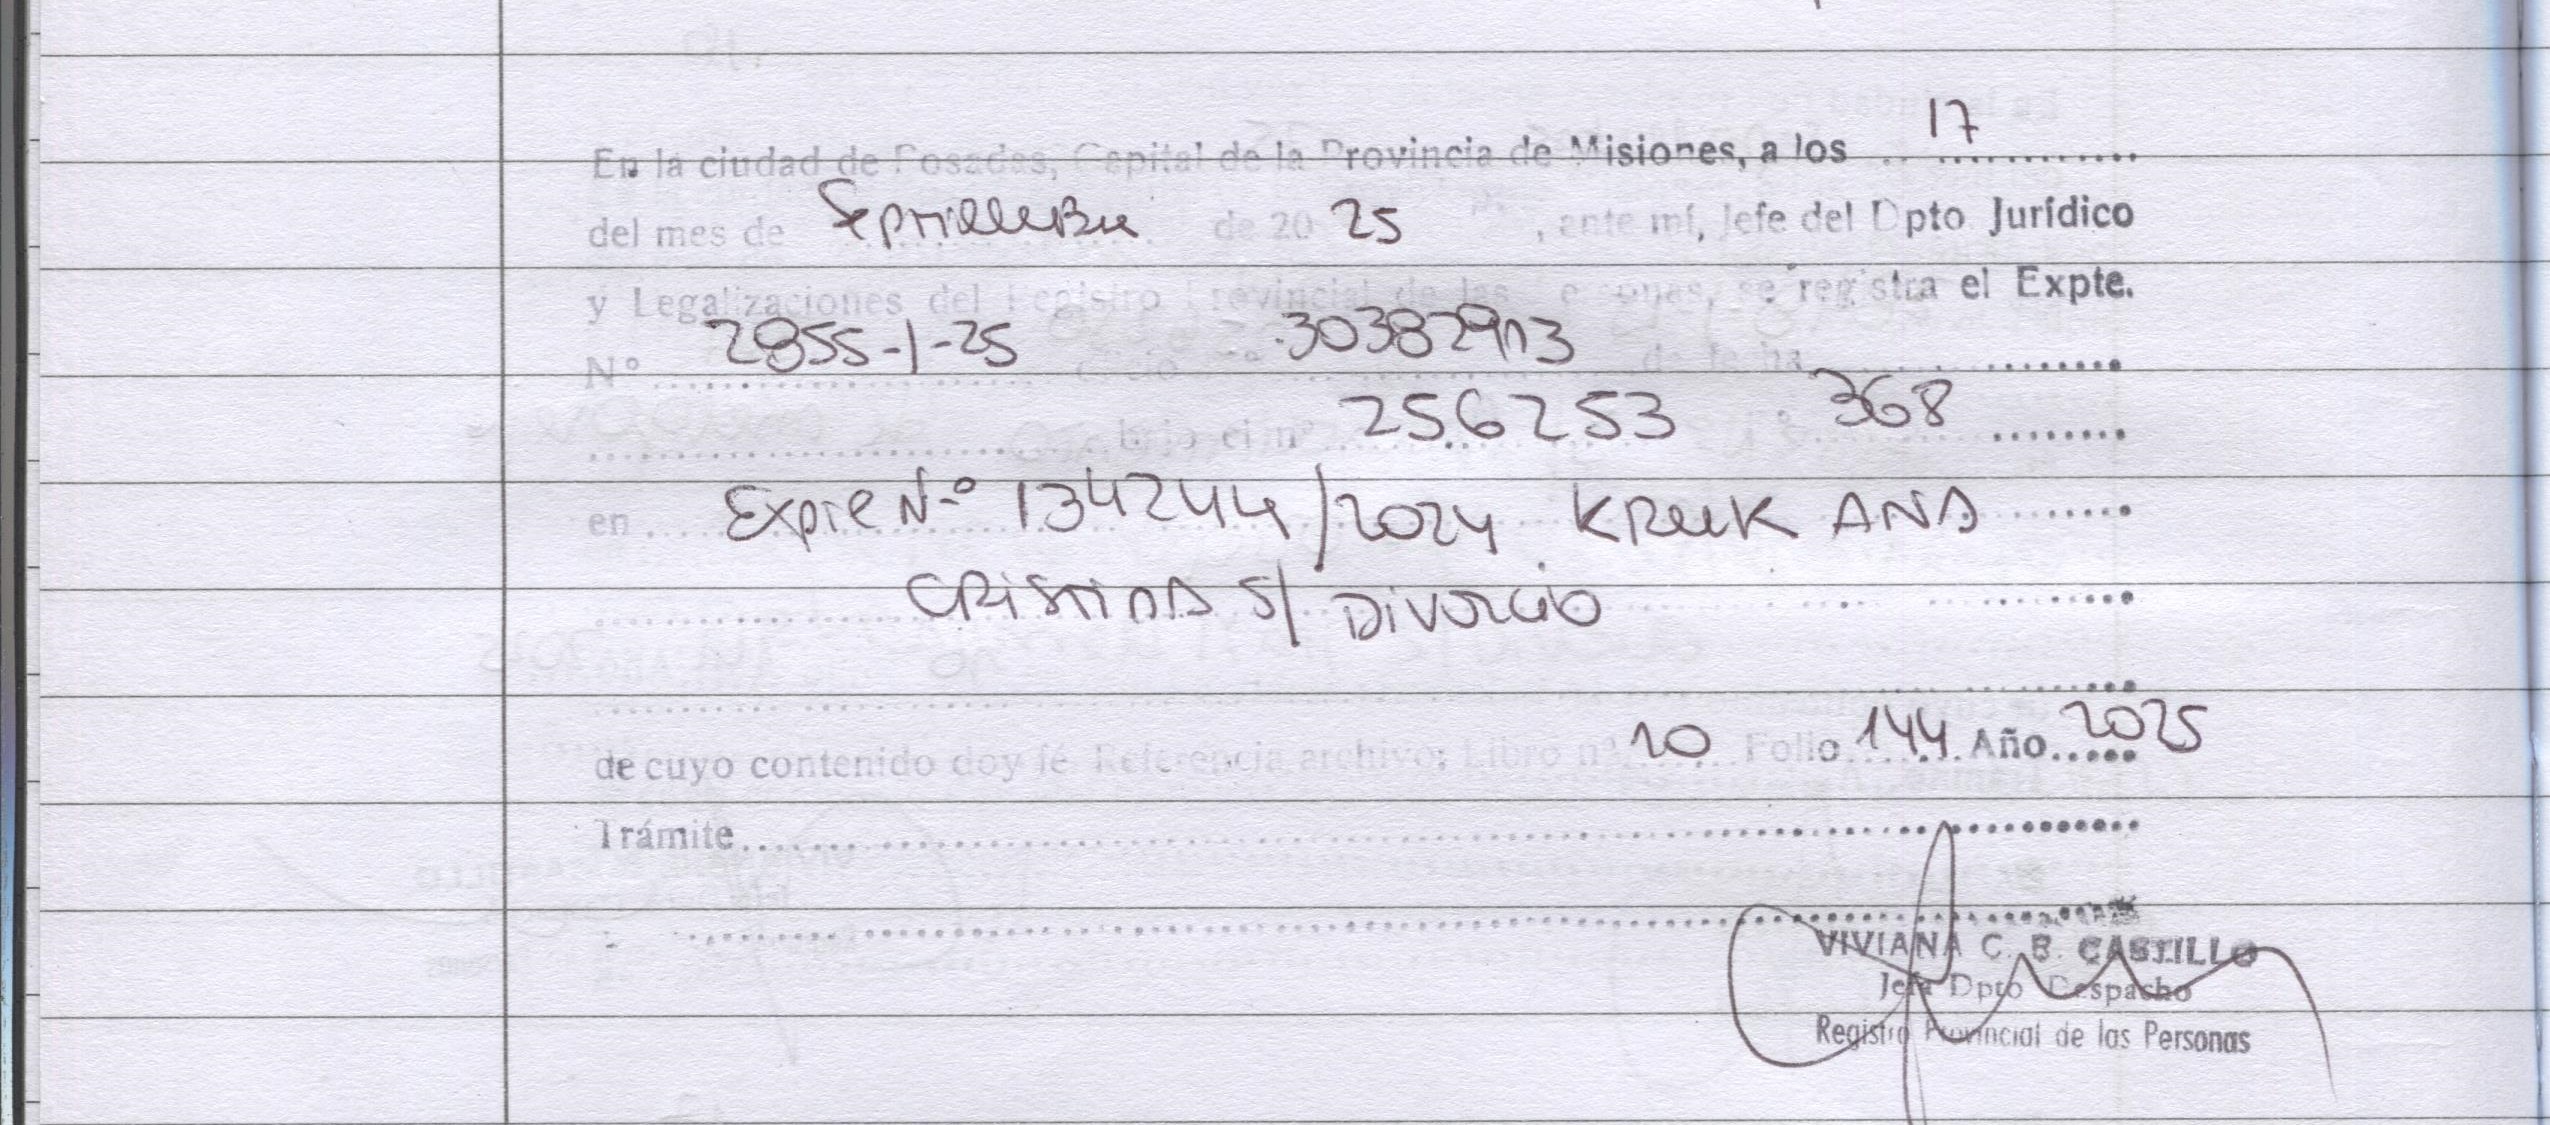 En la ciudad de Posadas, Capital de la Provincia de Misiones, a los 17
del mes de Septiembre de 20 25, ante mí, Jefe del Dpto Jurídico
y Legalizaciones del Registro Provincial de las Personas, se registra el Expte.
Nº 2855-1-25 Oficio 30382913 de fecha
bajo el nº 256253 368
en Expte Nº 134244/2024 KRUK ANA
CRISTINA S/ DIVORCIO
de cuyo contenido doy fé Referencia archivo: Libro nº 10 Folio 144 Año 2025
Trámite
VIVIANA C. B. CASTILLO
Jefa Dpto Despacho
Registro Provincial de las Personas